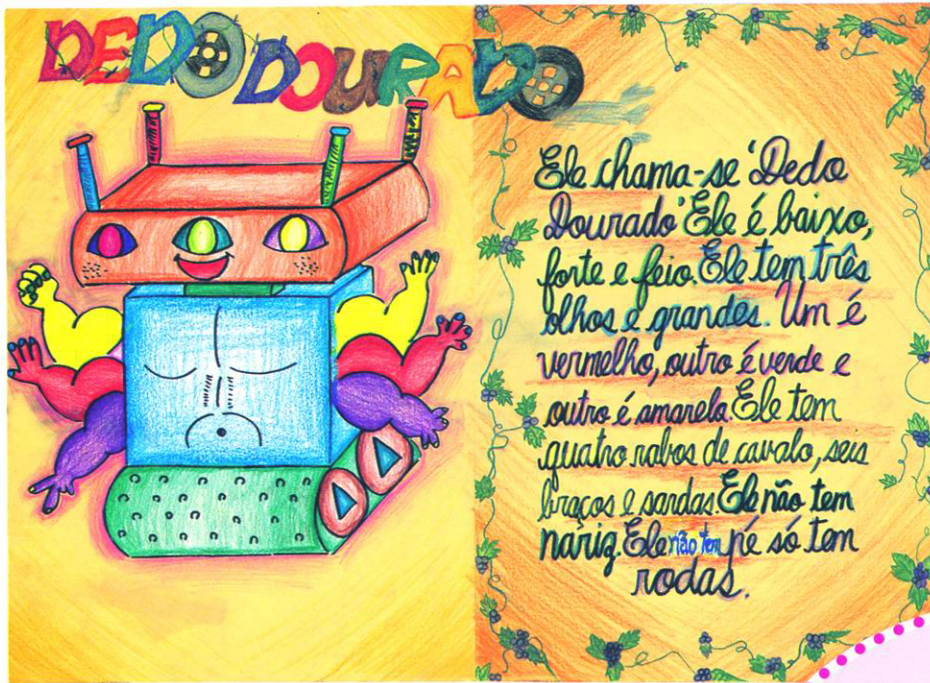 DEDO DOURADO
Ele chama-se 'Dedo
Dourado' Ele é baixo,
forte e feio. Ele tem três
olhos e grandes. Um é
vermelho, outro é verde e
outro é amarela. Ele tem
quatro rabos de cavalo, seis
braços e sardas. Ele não tem
nariz. Ele não tem pé só tem
rodas.